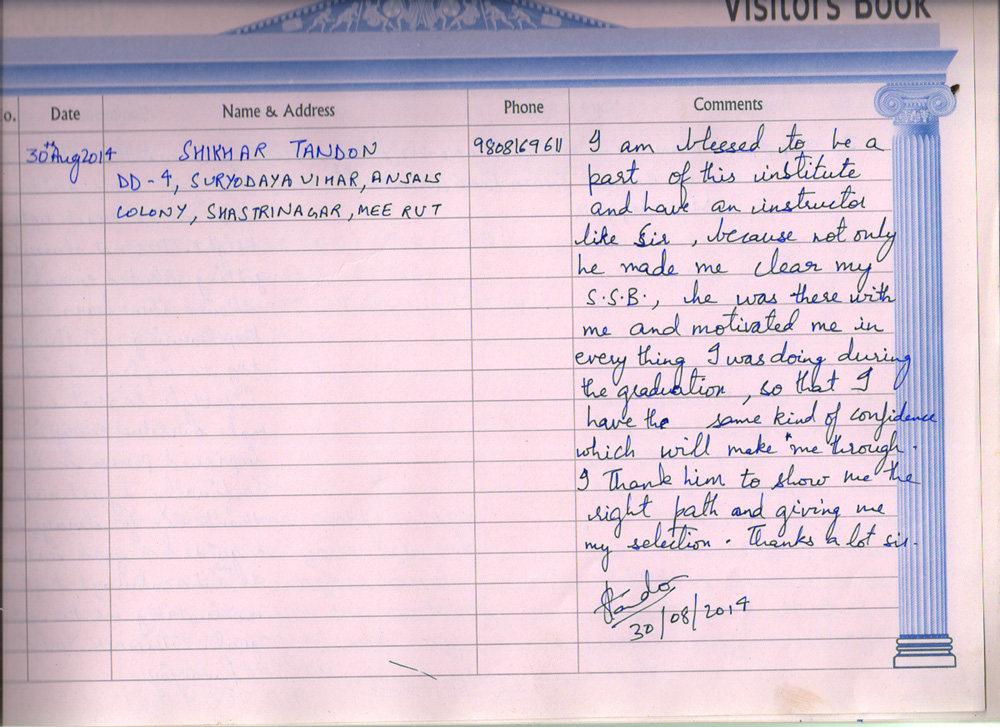 Visitors Book
o. Date Name & Address Phone Comments
30th Aug 2014 SHIKHAR TANDON 9808169611 I am blessed to be a
DD-4, SURYODAYA VIHAR, ANSALS part of this institute
COLONY, SHASTRINAGAR, MEERUT and have an instructor
like Sir, because not only
he made me clear my
S.S.B., he was there with
me and motivated me in
every thing I was doing during
the graduation, so that I
have the same kind of confidence
which will make me through.
I Thank him to show me the
right path and giving me
my selection. Thanks a lot sir.
30/08/2014